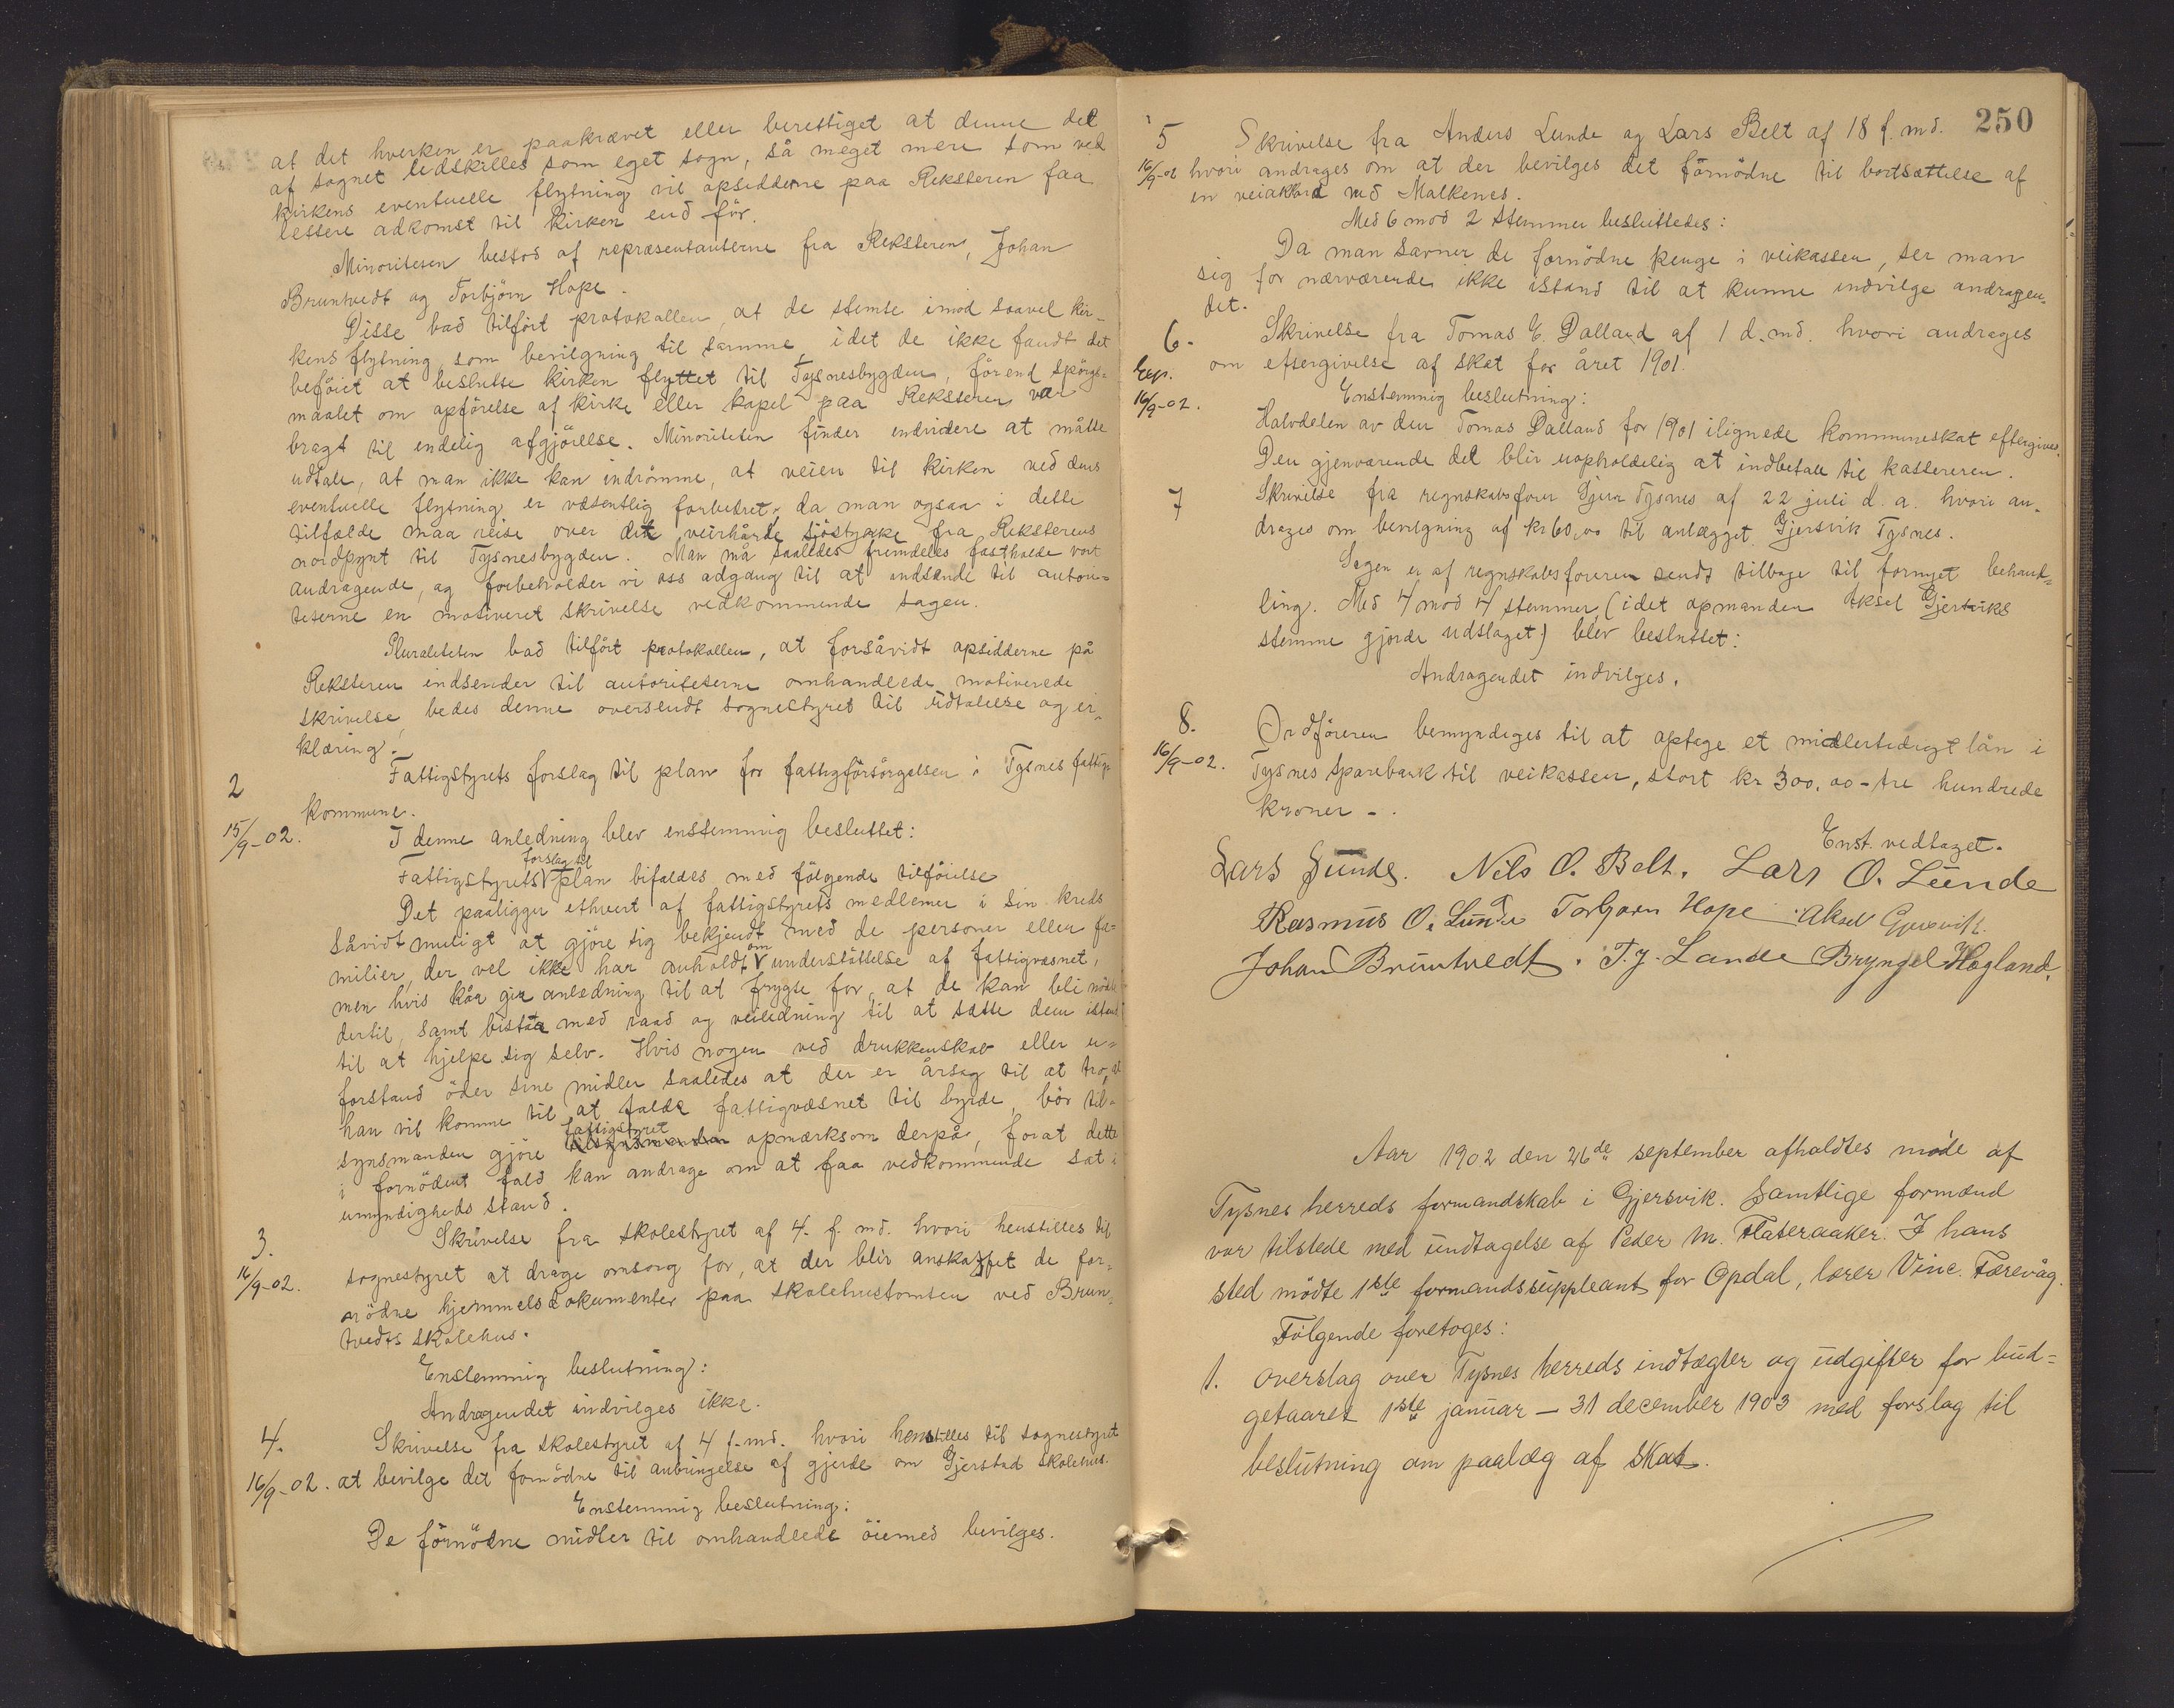 at det hverken er paakrævet eller berettiget at denne del
af sognet udskilles som eget sogn, så meget mere som ved
kirkens eventuelle flytning vil opsidderne paa Reksteren faa
lettere adkomst til kirken end før.
Minoriteten bestod af repræsentanterne fra Reksteren, Johan
Bruntvedt og Torbjörn Hope.
Disse bad tilført protokollen, at de stemte imod saavel kir-
kens flytning som bevilgning til samme, idet de ikke fandt det
beföiet at beslutte kirken flyttet til Tysnesbygden, förend spörgs-
maalet om opförelse af kirke eller kapel paa Reksteren var
bragt til endelig afgjörelse. Minoriteten finder endvidere at måtte
udtale, at man ikke kan indrömme, at veien til kirken ved dens
eventuelle flytning er væsentlig forbedret, da man ogsaa i dette
tilfælde maa reise over det veirhårde sjöstykke fra Reksterens
nordpynt til Tysnesbygden. Man må saaledes fremdeles fastholde vort
andragende, og forbeholder vi oss adgang til at indsende til autori-
teterne en motiveret skrivelse vedkommende sagen.
Pluraliteten bad tilført protokollen, at forsåvidt opsidderne på
Reksteren indsender til autoriteterne omhandlede motiverede
skrivelse, bedes denne oversendt sognestyret til udtalelse og er-
klæring.
2 Fattigstyrets forslag til plan for fattigforsörgelsen i Tysnes fattig-
kommune.
15/9-02. I denne anledning blev enstemmig besluttet:
forslag til
Fattigstyrets V plan bifaldes med fölgende tilföielse
Det paaligger ethvert af fattigstyrets medlemer i sin kreds
såvidt muligt at gjöre sig bekjendt med de personer eller fa-
om
milier, der vel ikke har anholdt V understöttelse af fattigvæsnet,
men hvis kår gir anledning til at frygte for at de kan bli nödte
dertil, samt bistaa med raad og veiledning til at sætte dem istand
til at hjelpe sig selv. Hvis nogen ved drukkenskab eller u-
forstand öder sine midler saaledes at der er årsag til at tro, at
han vil komme til at falde fattigvæsnet til byrde, bör til-
fattigstyret
synsmanden gjöre tilsynsmanden opmærksom derpå, forat dette
i fornödent fald kan andrage om at faa vedkommende sat i
umyndigheds stand.
3. Skrivelse fra skolestyret af 4. f. md. hvori henstilles til
16/9-02. sognestyret at drage omsorg for, at der blir anskaffet de for-
nödne hjemmelsdokumenter paa skolehustomten ved Brun-
tvedts skolehus.
Enstemmig beslutning:
Andragendet indvilges ikke.
4. Skrivelse fra skolestyret af 4 f. md. hvori henstilles til sognestyret
16/9-02. at bevilge det fornödne til anbringelse af gjerde om Gjerstad skolehus.
Enstemmig beslutning:
De förnödne midler til omhandlede öiemed bevilges.
250
5 Skrivelse fra Anders Lunde og Lars Belt af 18 f. md.
16/9-02 hvori andrages om at der bevilges det förnödne til bortsættelse af
en veiakkord ved Malkenes.
Med 6 mod 2 stemmer besluttedes:
Da man savner de fornödne penge i veikassen, ser man
sig for nærværende ikke istand til at kunne indvilge andragen-
det.
6. Skrivelse fra Tomas E. Dalland af 1 d. md. hvori andrages
Exp. om eftergivelse af skat for året 1901.
16/9-02. Enstemmig beslutning:
Halvdelen av den Tomas Dalland for 1901 ilignede kommuneskat eftergives.
Den gjenværende del blir uopholdelig at indbetale til kassereren.
7 Skrivelse fra regnskabsförer Gjern Tysnes af 22 juli d. a. hvori an-
drages om bevilgning af kr 60,00 til anlægget Gjersvik Tysnes.
Sagen er af regnskabsföreren sendt tilbage til fornyet behand-
ling. Med 4 mod 4 stemmer, (idet opmanden Aksel Gjersviks
stemme gjorde udslaget) blev besluttet:
Andragendet indvilges.
8. Ordföreren bemyndiges til at optage et midlertidigt lån i
16/9-02. Tysnes sparebank til veikassen, stort kr 300,00 - tre hundrede
kroner -.
Enst. vedtaget.
Lars Sunde. Nils O. Belt. Lars O. Lunde
Rasmus O. Lunde Torbjørn Hope Aksel Gjersvik.
Johan Bruntvedt. T. J. Lande Bryngel Hogland.
Aar 1902 den 26de september afholdtes möde af
Tysnes herreds formandskab i Gjersvik. Samtlige formænd
var tilstede med undtagelse af Peder M. Flateraaker. I hans
sted mödte 1ste formandssuppleant for Opdal, lærer Vinc. Færevåg.
Fölgende foretoges:
1. Overslag over Tysnes herreds indtægter og udgifter for bud-
getaaret 1ste januar - 31 december 1903 med forslag til
beslutning om paalæg af skat.